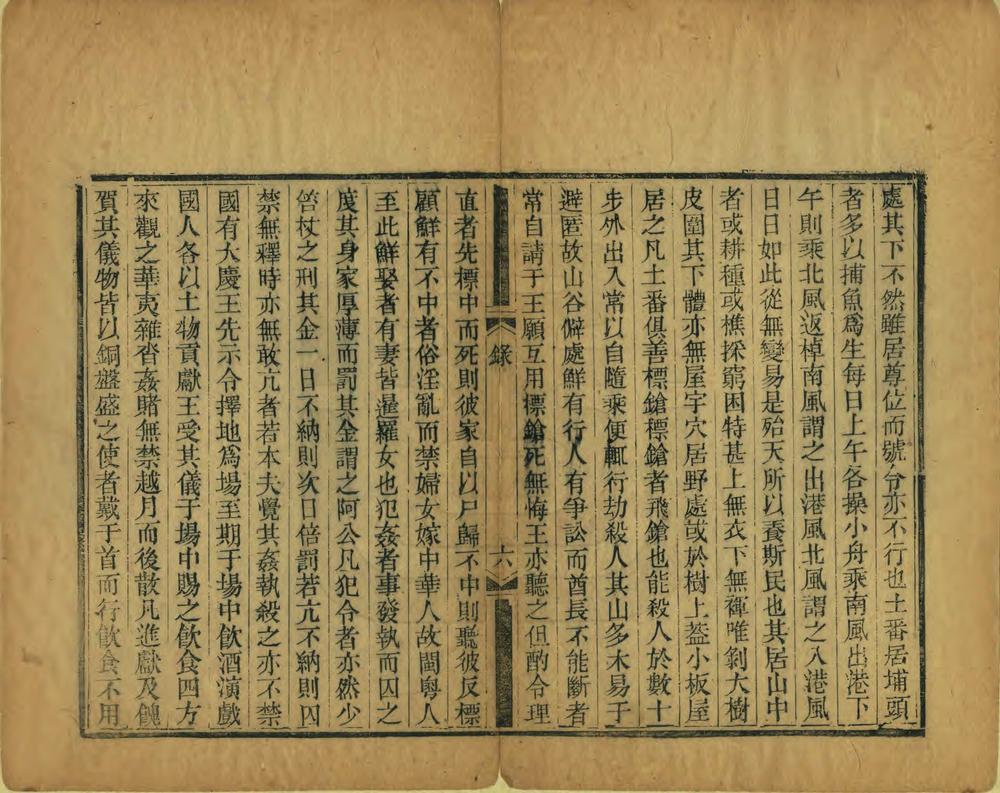 處其下不然雖居尊位而號令亦不行也土番居埔頭
者多以捕魚爲生每日上午各操小舟乘南風出港下
午則乘北風返棹南風謂之出港風北風謂之入港風
日日如此從無變易是殆天所以養斯民也其居山中
者或耕種或樵採窮困特甚上無衣下無褌唯剝大樹
皮圍其下體亦無屋宇穴居野處或於樹上葢小板屋
居之凡土番俱善標鎗標鎗者飛鎗也能殺人於數十
步外出入常以自隨乘便輒行劫殺人其山多木易于
避匿故山谷僻處鮮有行人有爭訟而酋長不能斷者
常自請于王願互用標鎗死無悔王亦聽之但酌令理
錄
六
直者先標中而死則彼家自以尸歸不中則聽彼反標
顧鮮有不中者俗淫亂而禁婦女嫁中華人故閩粵人
至此鮮娶者有妻皆暹羅女也犯姦者事發執而囚之
度其身家厚薄而罰其金謂之阿公凡犯令者亦然少
笞杖之刑其金一日不納則次日倍罰若亢不納則囚
禁無釋時亦無敢亢者若本夫覺其姦執殺之亦不禁
國有大慶王先示令擇地爲場至期于場中飮酒演戲
國人各以土物貢獻王受其儀于場中賜之飮食四方
來觀之華夷雜沓姦賭無禁越月而後散凡進獻及餽
賀其儀物皆以銅盤盛之使者戴于首而行飮食不用